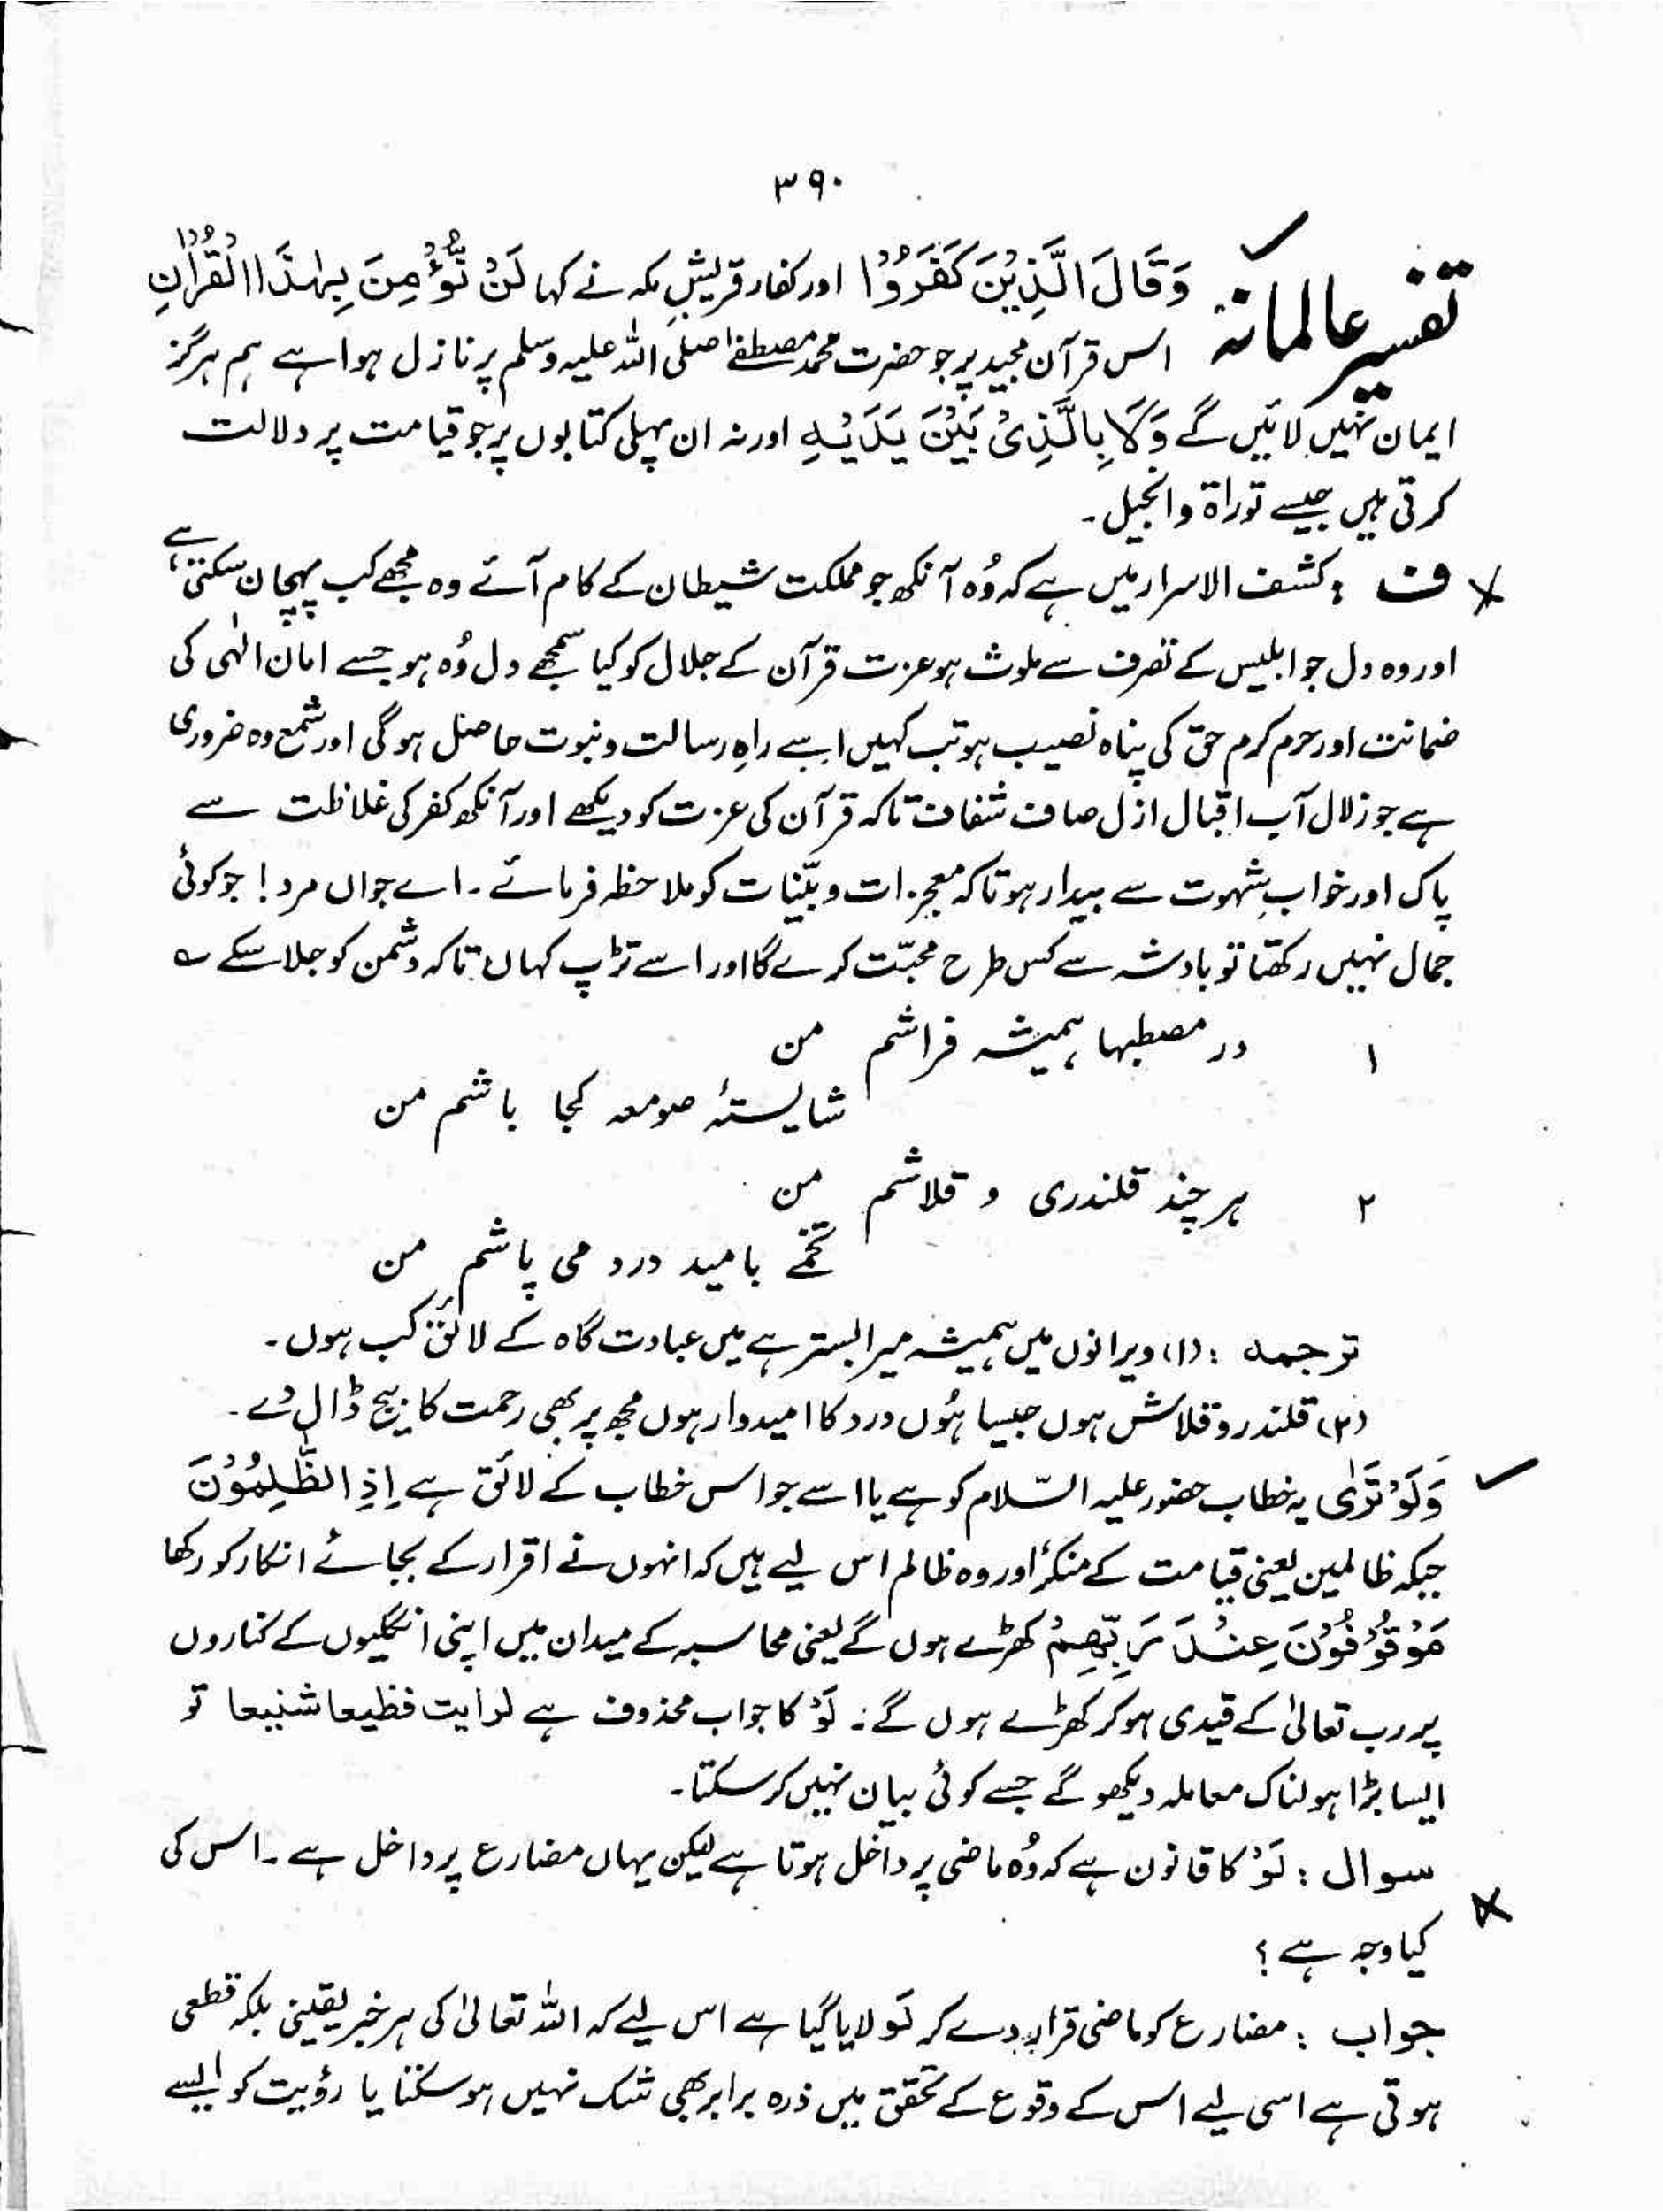 ۳۹۰
تفسیر عالمانہ وَقَالَ الَّذِیْنَ کَفَرُوْا اور کفار قریشِ مکہ نے کہا لَنْ نُّؤْمِنَ بِہٰذَا الْقُرْاٰنِ
اس قرآن مجید پر جو حضرت محمد مصطفےٰ صلی اللہ علیہ وسلم پر نازل ہوا ہے ہم ہرگز
ایمان نہیں لائیں گے وَلَا بِالَّذِیْ بَیْنَ یَدَیْہِ اور نہ ان پہلی کتابوں پر جو قیامت پر دلالت
کرتی ہیں جیسے توراۃ و انجیل۔
ف : کشف الاسرار میں ہے کہ وُہ آنکھ جو مملکت شیطان کے کام آئے وہ مجھے کب پہچان سکتی ہے
اور وہ دل جو ابلیس کے تصرف سے ملوث ہو عزت قرآن کے جلال کو کیا سمجھے دل وُہ ہو جسے امان الٰہی کی
ضمانت اور حرم کرم حق کی پناہ نصیب ہو تب کہیں اسے راہِ رسالت و نبوت حاصل ہوگی اور شمع وہ ضروری
ہے جو زلال آب اقبال ازل صاف شفاف تاکہ قرآن کی عزت کو دیکھے اور آنکھ کفر کی غلاظت سے
پاک اور خواب شہوت سے بیدار ہو تاکہ معجزات و بیّنات کو ملاحظہ فرمائے۔ اے جواں مرد! جو کوئی
جمال نہیں رکھتا تو بادشہ سے کس طرح محبّت کرے گا اور اسے تڑپ کہاں تاکہ دشمن کو جلا سکے ؎
۱ در مصطبہا ہمیشہ فراشم من
شایستۂ صومعہ کجا باشم من
۲ ہر چند قلندری و قلاشم من
تخمے بامید درد می پاشم من
ترجمہ : (۱) ویرانوں میں ہمیشہ میرا بستر ہے میں عبادت گاہ کے لائق کب ہوں۔
(۲) قلندر و قلاش ہوں جیسا ہُوں درد کا امیدوار ہوں مجھ پر بھی رحمت کا بیج ڈال دے۔
وَلَوْ تَرٰی یہ خطاب حضور علیہ السّلام کو ہے یا اسے جو اس خطاب کے لائق ہے اِذِ الظّٰلِمُوْنَ
جبکہ ظالمین یعنی قیامت کے منکر اور وہ ظالم اس لیے ہیں کہ انہوں نے اقرار کے بجائے انکار کو رکھا
مَوْقُوْفُوْنَ عِنْدَ رَبِّھِمْ کھڑے ہوں گے یعنی محاسبہ کے میدان میں اپنی انگلیوں کے کناروں
پر رب تعالیٰ کے قیدی ہو کر کھڑے ہوں گے : لَوْ کا جواب محذوف ہے لرایت فظیعا شنیعا تو
ایسا بڑا ہولناک معاملہ دیکھو گے جسے کوئی بیان نہیں کر سکتا۔
سوال : لَوْ کا قانون ہے کہ وُہ ماضی پر داخل ہوتا ہے لیکن یہاں مضارع پر داخل ہے۔ اس کی
کیا وجہ ہے ؟
جواب : مضارع کو ماضی قرار دے کر لَو لایا گیا ہے اس لیے کہ اللہ تعالیٰ کی ہر خبر یقینی بلکہ قطعی
ہوتی ہے اسی لیے اس کے وقوع کے تحقق میں ذرہ برابر بھی شک نہیں ہو سکتا یا رؤیت کو ایسے